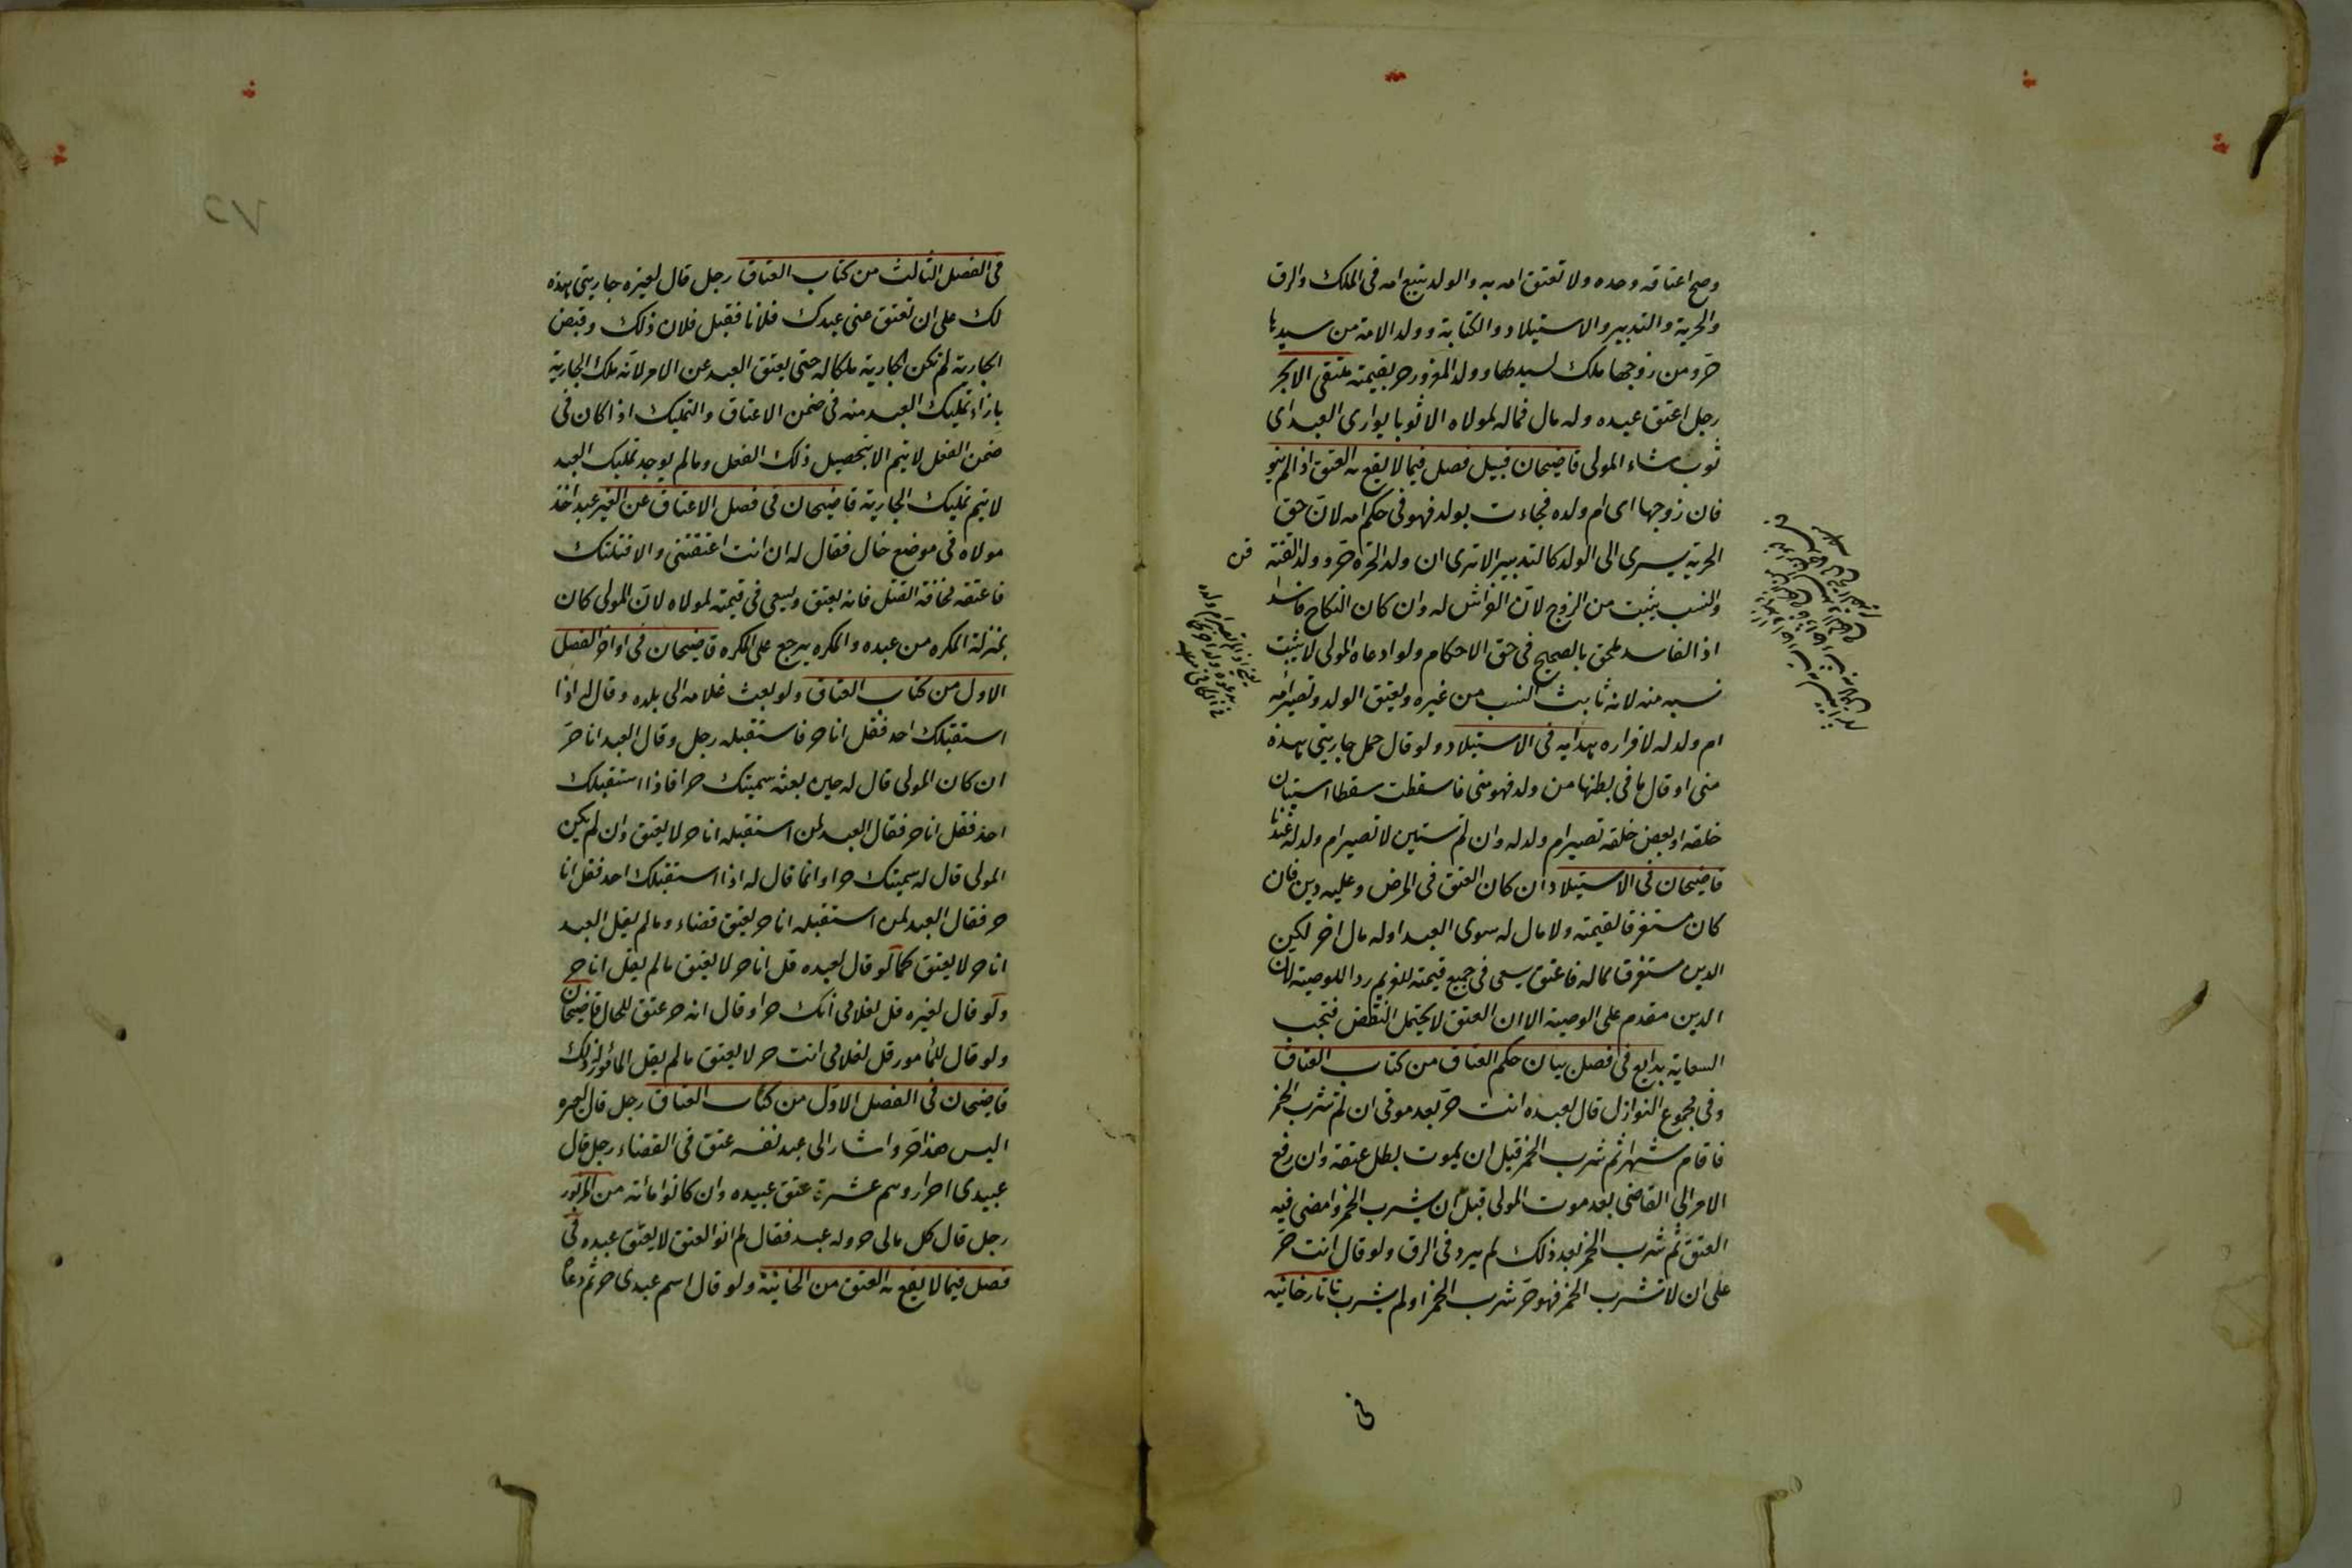 وصح اعتاقه وحده ولا تعتق امه به والولد يتبع امه فى الملك والرق
والحرية والتدبير والاستيلاد والكتابة وولد الامة من سيدها
حر ومن زوجها ملك لسيدها وولد المغرور حر بقيمته ملتقى الابحر
رجل اعتق عبده وله مال فماله لمولاه الا ثوبا يوارى العبد اى
ثوب شاء المولى قاضيخان قبيل فصل فيما لا يقع به العتق اذا لم ينو
فان زوجها اى ام ولده فجاءت بولد فهو فى حكم امه لان حق
الحرية يسرى الى الولد كالتدبير الا ترى ان ولد الحرة حر وولد القنة
قن
والنسب يثبت من الزوج لان الفراش له وان كان النكاح فاسدا
اذ الفاسد ملحق بالصحيح فى حق الاحكام ولو ادعاه المولى لا يثبت
نسبه منه لانه ثابت النسب من غيره ويعتق الولد وتصير امه
ام ولد له لاقراره هدايه فى الاستيلاد ولو قال حمل جاريتى هذه
منى او قال ما فى بطنها من ولد فهو منى فاسقطت سقطا استبان
خلقه او بعض خلقه تصير ام ولد له وان لم يستبن لا تصير ام ولد له عندنا
قاضيخان فى الاستيلاد ان كان العتق فى المرض وعليه دين فان
كان مستغرقا لقيمته ولا مال له سوى العبد او له مال اخر لكن
الدين مستغرقا لماله فاعتق يسعى فى جميع قيمته للغريم ردا للوصية لان
الدين مقدم على الوصية الا ان العتق لا يحتمل النقض فتجب
السعاية بدايع فى فصل بيان حكم العتاق من كتاب العتاق
وفى مجموع النوازل قال لعبده انت حر بعد موتى ان لم تشرب الخمر
فاقام شهرا ثم شرب الخمر قبل ان يموت بطل عتقه وان رفع
الامر الى القاضى بعد موت المولى قبل ان يشرب الخمر وامضى فيه
العتق ثم شرب الخمر بعد ذلك لم يرد فى الرق ولو قال انت حر
على ان لا تشرب الخمر فهو حر شرب الخمر او لم يشرب تاتارخانيه
فى
فى الفصل الثالث من كتاب العتاق رجل قال لغيره جاريتى هذه
لك على ان تعتق عنى عبدك فلانا فقبل فلان ذلك وقبض
الجارية لم تكن الجارية ملكا له حتى يعتق العبد عن الامر لانه ملك الجارية
بازاء تمليك العبد منه فى ضمن الاعتاق والتمليك اذا كان فى
ضمن الفعل لا يتم الا بتحصيل ذلك الفعل وما لم يوجد تمليك العبد
لا يتم تمليك الجارية قاضيخان فى فصل الاعتاق عن الغير عبد اخذ
مولاه فى موضع خال فقال له ان انت اعتقتنى والا قتلتك
فاعتقه مخافة القتل فانه يعتق ويسعى فى قيمته لمولاه لان المولى كان
بمنزلة المكره من عبده والمكره يرجع على المكره قاضيخان فى اواخر الفصل
الاول من كتاب العتاق ولو بعث غلامه الى بلده وقال له اذا
استقبلك احد فقل انا حر فاستقبله رجل وقال العبد انا حر
ان كان المولى قال له حين بعثه سميتك حرا فاذا استقبلك
احد فقل انا حر فقال العبد لمن استقبله انا حر لا يعتق وان لم يكن
المولى قال له سميتك حرا وانما قال له اذا استقبلك احد فقل انا
حر فقال العبد لمن استقبله انا حر يعتق قضاء وما لم يقل العبد
انا حر لا يعتق كما لو قال لعبده قل انا حر لا يعتق ما لم يقل انا حر
ولو قال لغيره قل لغلامى انك حر او قال انه حر عتق للحال قاضيخان
ولو قال للمأمور قل لغلامى انت حر لا يعتق ما لم يقل المأمور ذلك
قاضيخان فى الفصل الاول من كتاب العتاق رجل قال لغيره
اليس هذا حر واشار الى عبد نفسه عتق فى القضاء رجل قال
عبيدى احرار وهم عشرة عتق عبيده وان كانوا مائة من المزبور
رجل قال كل مالى حر وله عبد فقال لم انو العتق لا يعتق عبده فى
فصل فيما لا يقع به العتق من الخانية ولو قال اسم عبدى حر ثم دعاه